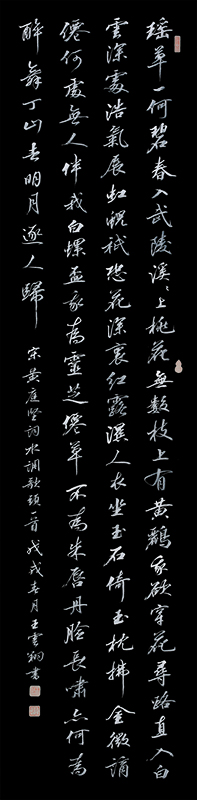 瑤草一何碧春入武陵溪〻上桃花無數枝上有黃鸝我欲穿花尋路直入白
雲深處浩氣展虹霓祇恐花深裏紅露濕人衣坐玉石倚玉枕拂金徽謫
僊何處無人伴我白螺盃我為靈芝僊草不為朱唇丹臉長嘯亦何為
醉舞下山去明月逐人歸
宋黃庭堅詞水調歌頭一首戊戌春月王雲翔書